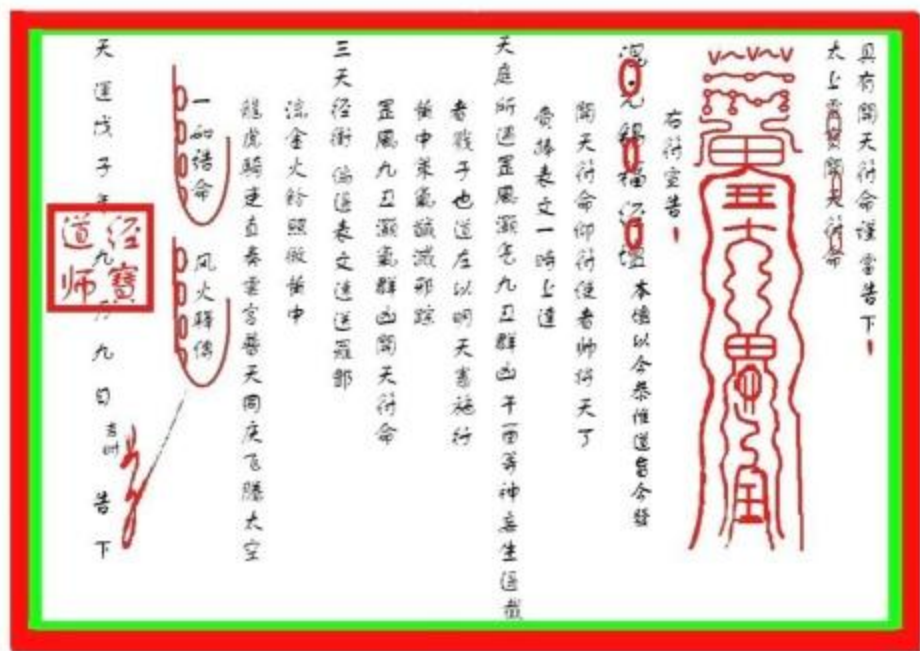 具有開天符命謹當告下
太上靈寶開天符命
右符宣告
混元錫福经壇 本壇以今恭惟道旨今發
開天符命仰符使者師将天丁
賫捧表文一時上達
天庭所過罡風灝炁九丑群凶干 等神妄生遏截
者戮子也道左以明天憲施行
黄中策氣誠滅邪踪
罡風九丑灝氣群凶開天符命
三天径衝 表文速送羅酆
流金火鈴照徹黄中
龍虎騎速直奏雲宫普天同庆飞腾太空
一如誥命 风火驛傳
天運戊子年九月九日 告下
道经師寶